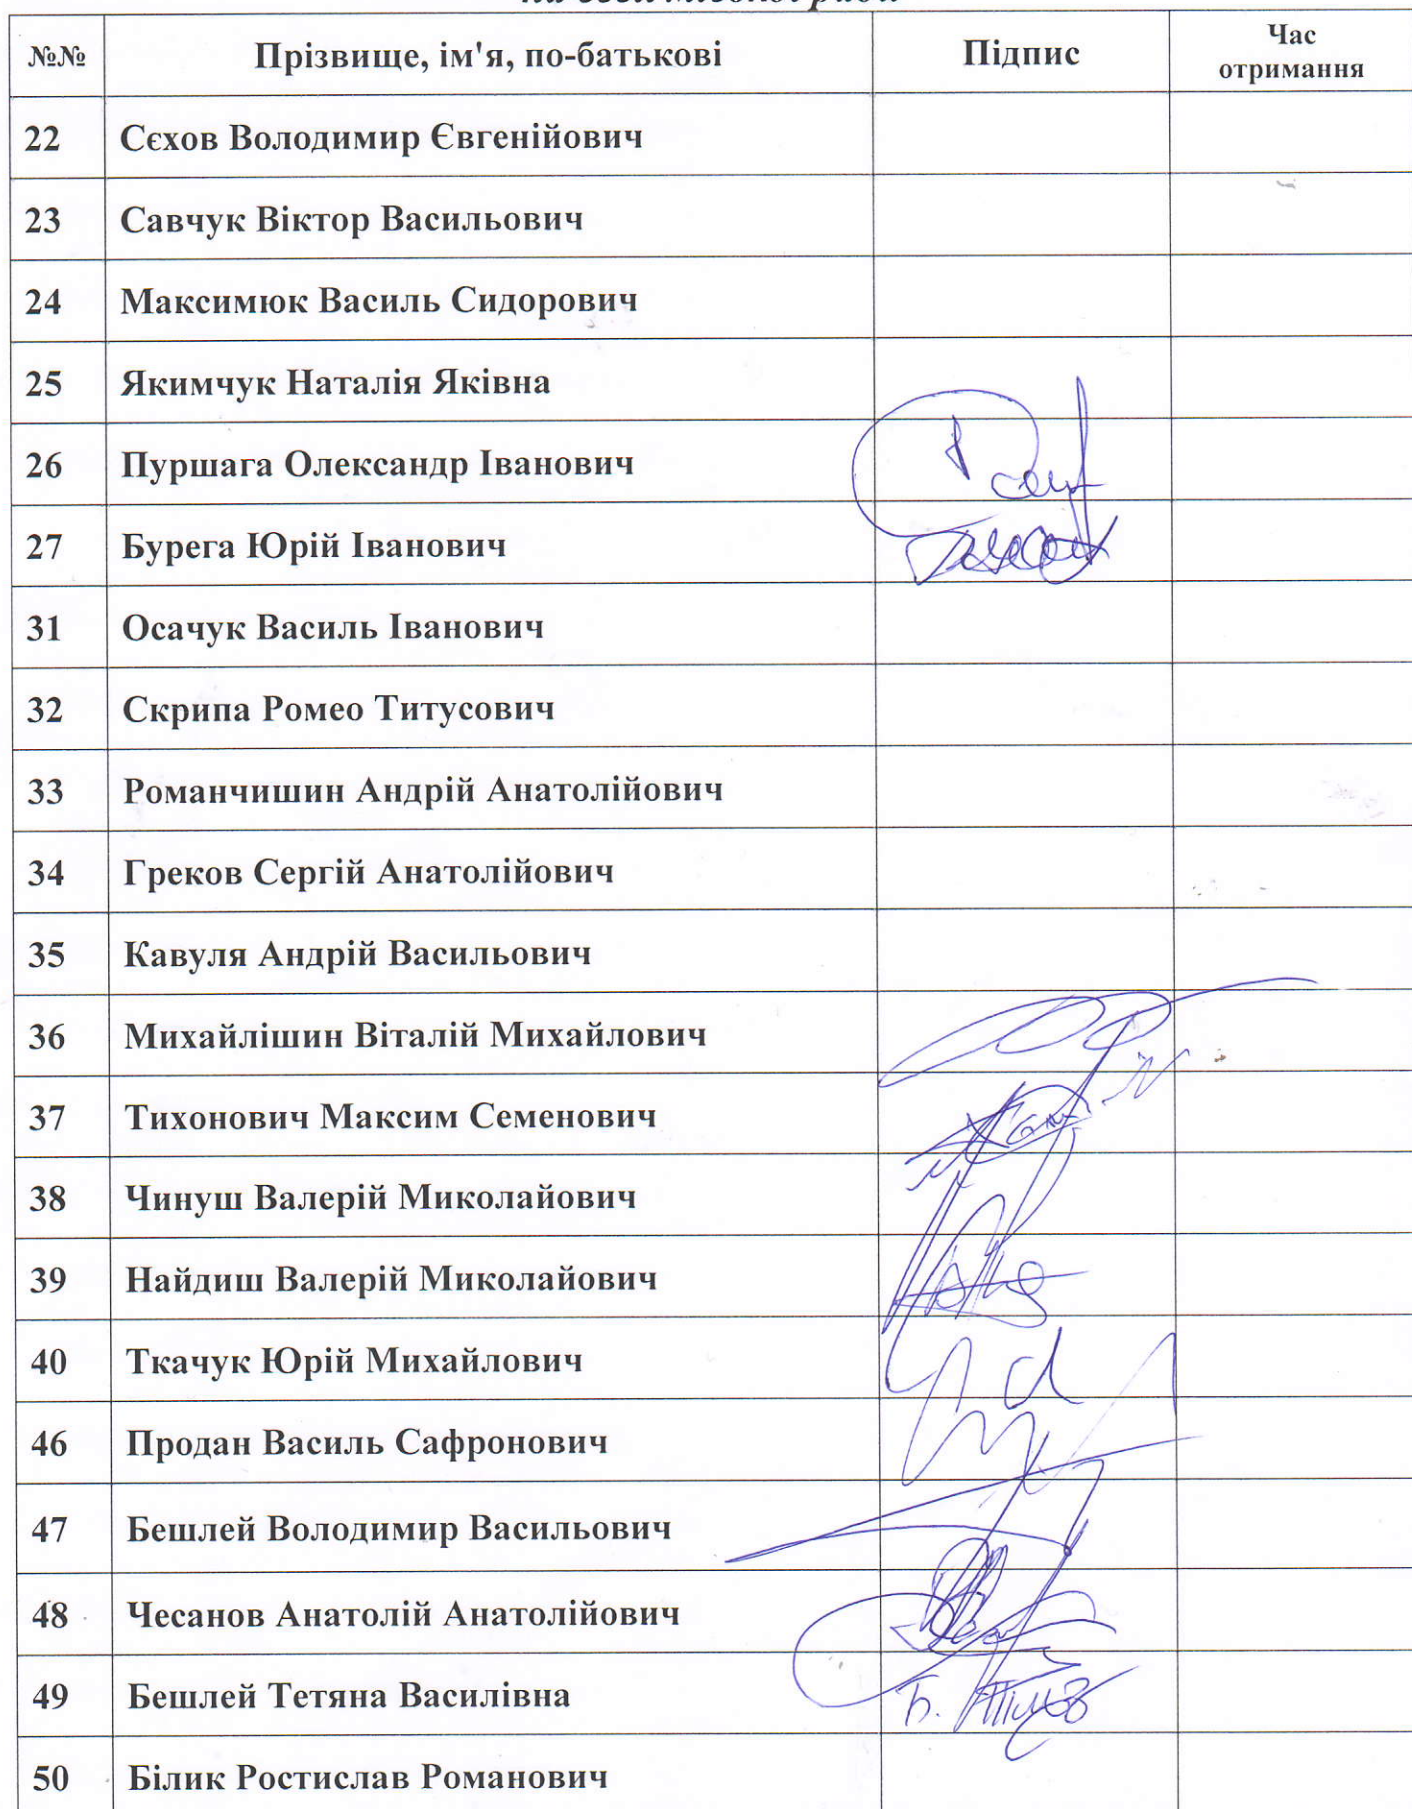 №№ Прізвище, ім'я, по-батькові Підпис Час отримання
22 Сєхов Володимир Євгенійович
23 Савчук Віктор Васильович
24 Максимюк Василь Сидорович
25 Якимчук Наталія Яківна
26 Пуршага Олександр Іванович
27 Бурега Юрій Іванович
31 Осачук Василь Іванович
32 Скрипа Ромео Титусович
33 Романчишин Андрій Анатолійович
34 Греков Сергій Анатолійович
35 Кавуля Андрій Васильович
36 Михайлішин Віталій Михайлович
37 Тихонович Максим Семенович
38 Чинуш Валерій Миколайович
39 Найдиш Валерій Миколайович
40 Ткачук Юрій Михайлович
46 Продан Василь Сафронович
47 Бешлей Володимир Васильович
48 Чесанов Анатолій Анатолійович
49 Бешлей Тетяна Василівна
50 Білик Ростислав Романович